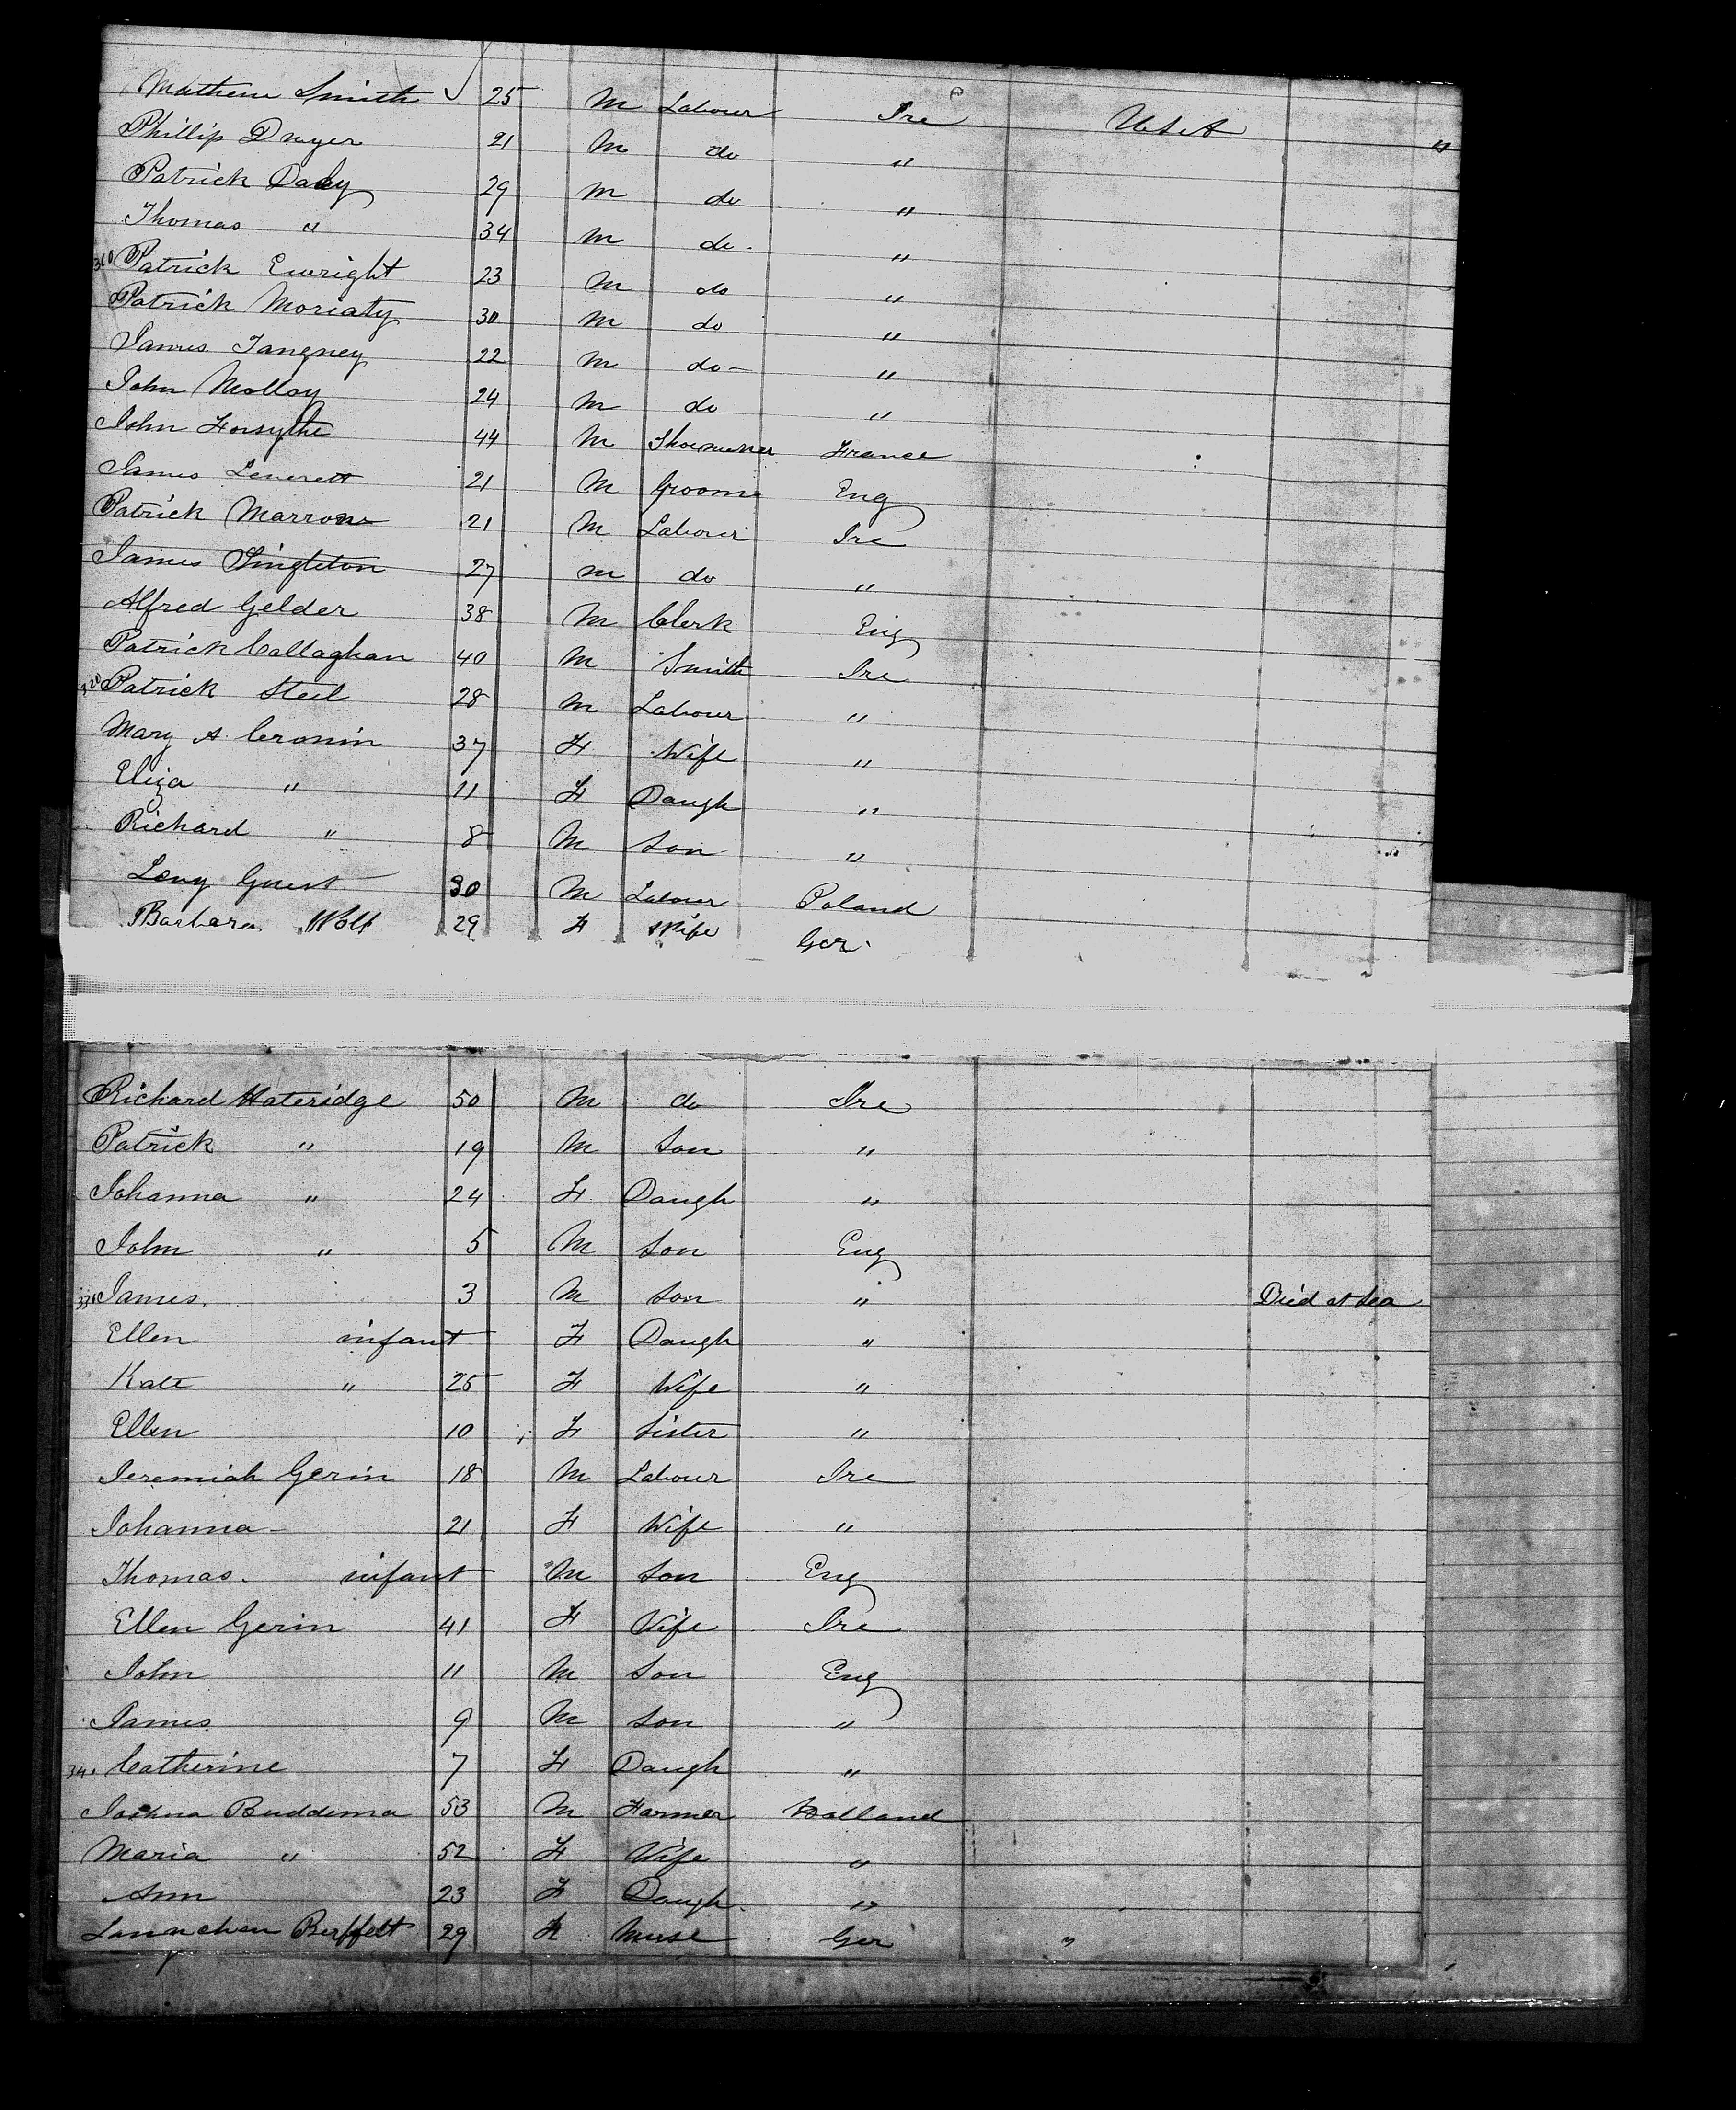 Mathew Smith 25 M Labour Ire U S A "
Phillip Dwyer 21 M do "
Patrick Daly 29 M do "
Thomas " 34 M do - "
310 Patrick Enright 23 M do "
Patrick Moriaty 30 M do "
James Tangney 22 M do - "
John Molloy 24 M do "
John Forsythe 44 M France
James Leverett 21 M Groom Eng
Patrick Marron 21 M Labour Ire
James Singleton 27 M do "
Alfred Gelder 38 M Clerk Eng
Patrick Callaghan 40 M Smith Ire
320 Patrick Steil 28 M Labour "
Mary A Cronin 37 F Wife "
Eliza " 11 F Daugh "
Richard " 8 M Son "
Levy Guest 30 M Labour Poland
Barbara Wolf 29 F Wife Ger.
Richard Hateridge 50 M do Ire
Patrick " 19 M Son "
Johanna " 24 F Daugh "
John " 5 M Son Eng
330 James. 3 M Son " Died at Sea
Ellen infant F Daugh "
Kate " 25 F Wife "
Ellen 10 F Sister "
Jeremiah Gerin 18 M Labour Ire
Johanna - 21 F Wife "
Thomas. infant M Son Eng
Ellen Gerin 41 F Wife Ire
John 11 M Son Eng
James 9 M Son "
340 Catherine 7 F Daugh "
Buddema 53 M Farmer Holland
Maria " 52 F Wife "
Ann 23 F Daugh. "
29 F Nurse Ger "